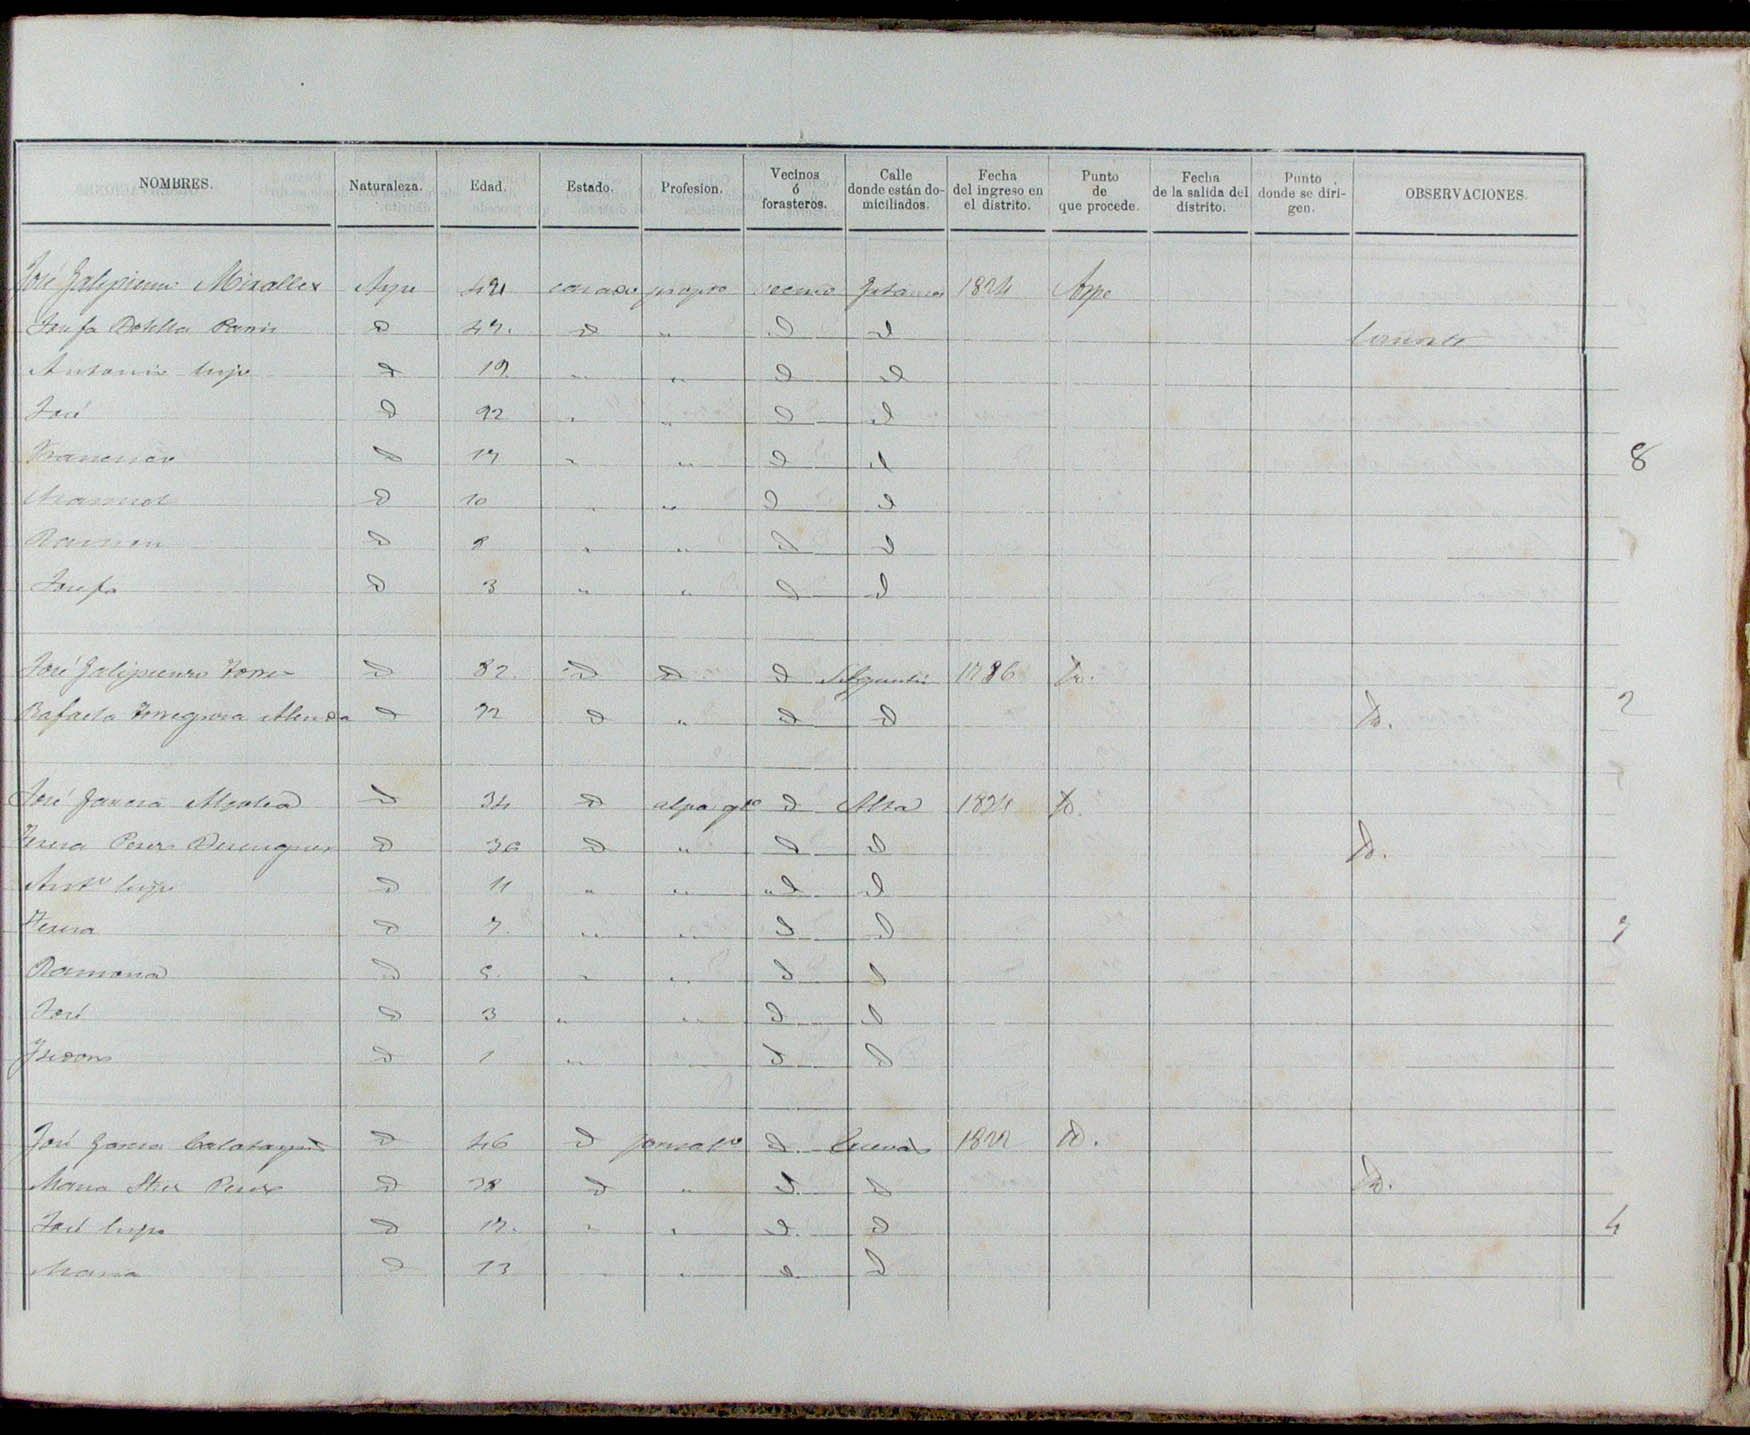 NOMBRES. Naturaleza. Edad. Estado. Profesion. Vecinos ó forasteros. Calle donde están domiciliados. Fecha del ingreso en el distrito. Punto de que procede. Fecha de la salida del distrito. Punto donde se dirigen. OBSERVACIONES.
José Galipienso Miralles Aspe casado vecino 1824 Aspe
Josefa Botella d d " d d
Antonio hijo d 19 " " d d
José d " " d d
Francisco d 17 " " d d 8
Manuel d 10 " " d d
Ramon d 8 " " d d
Josefa d 3 " " d d
José Galipienso Torres d 82. d d d 1786 D.
Rafaela Torregrosa Alenda d d " d d D. 2
José d 34 d alpargto d Alta 1824 D.
Teresa Perez Berenguer d 36 d " d d D.
Anto hijo d 11 " " d d
Teresa d 7. " " d d 7
Ramona d 5. " " d d
José d 3 " " d d
Isidoro d 1 " " d d
José Garcia Calatayud d 46 d jornalo d. Cuevas 1822 D.
Maria Perez d 38 d " d. d D.
José hijo d 17. " " d. d 4
Maria d 13 " " d. d